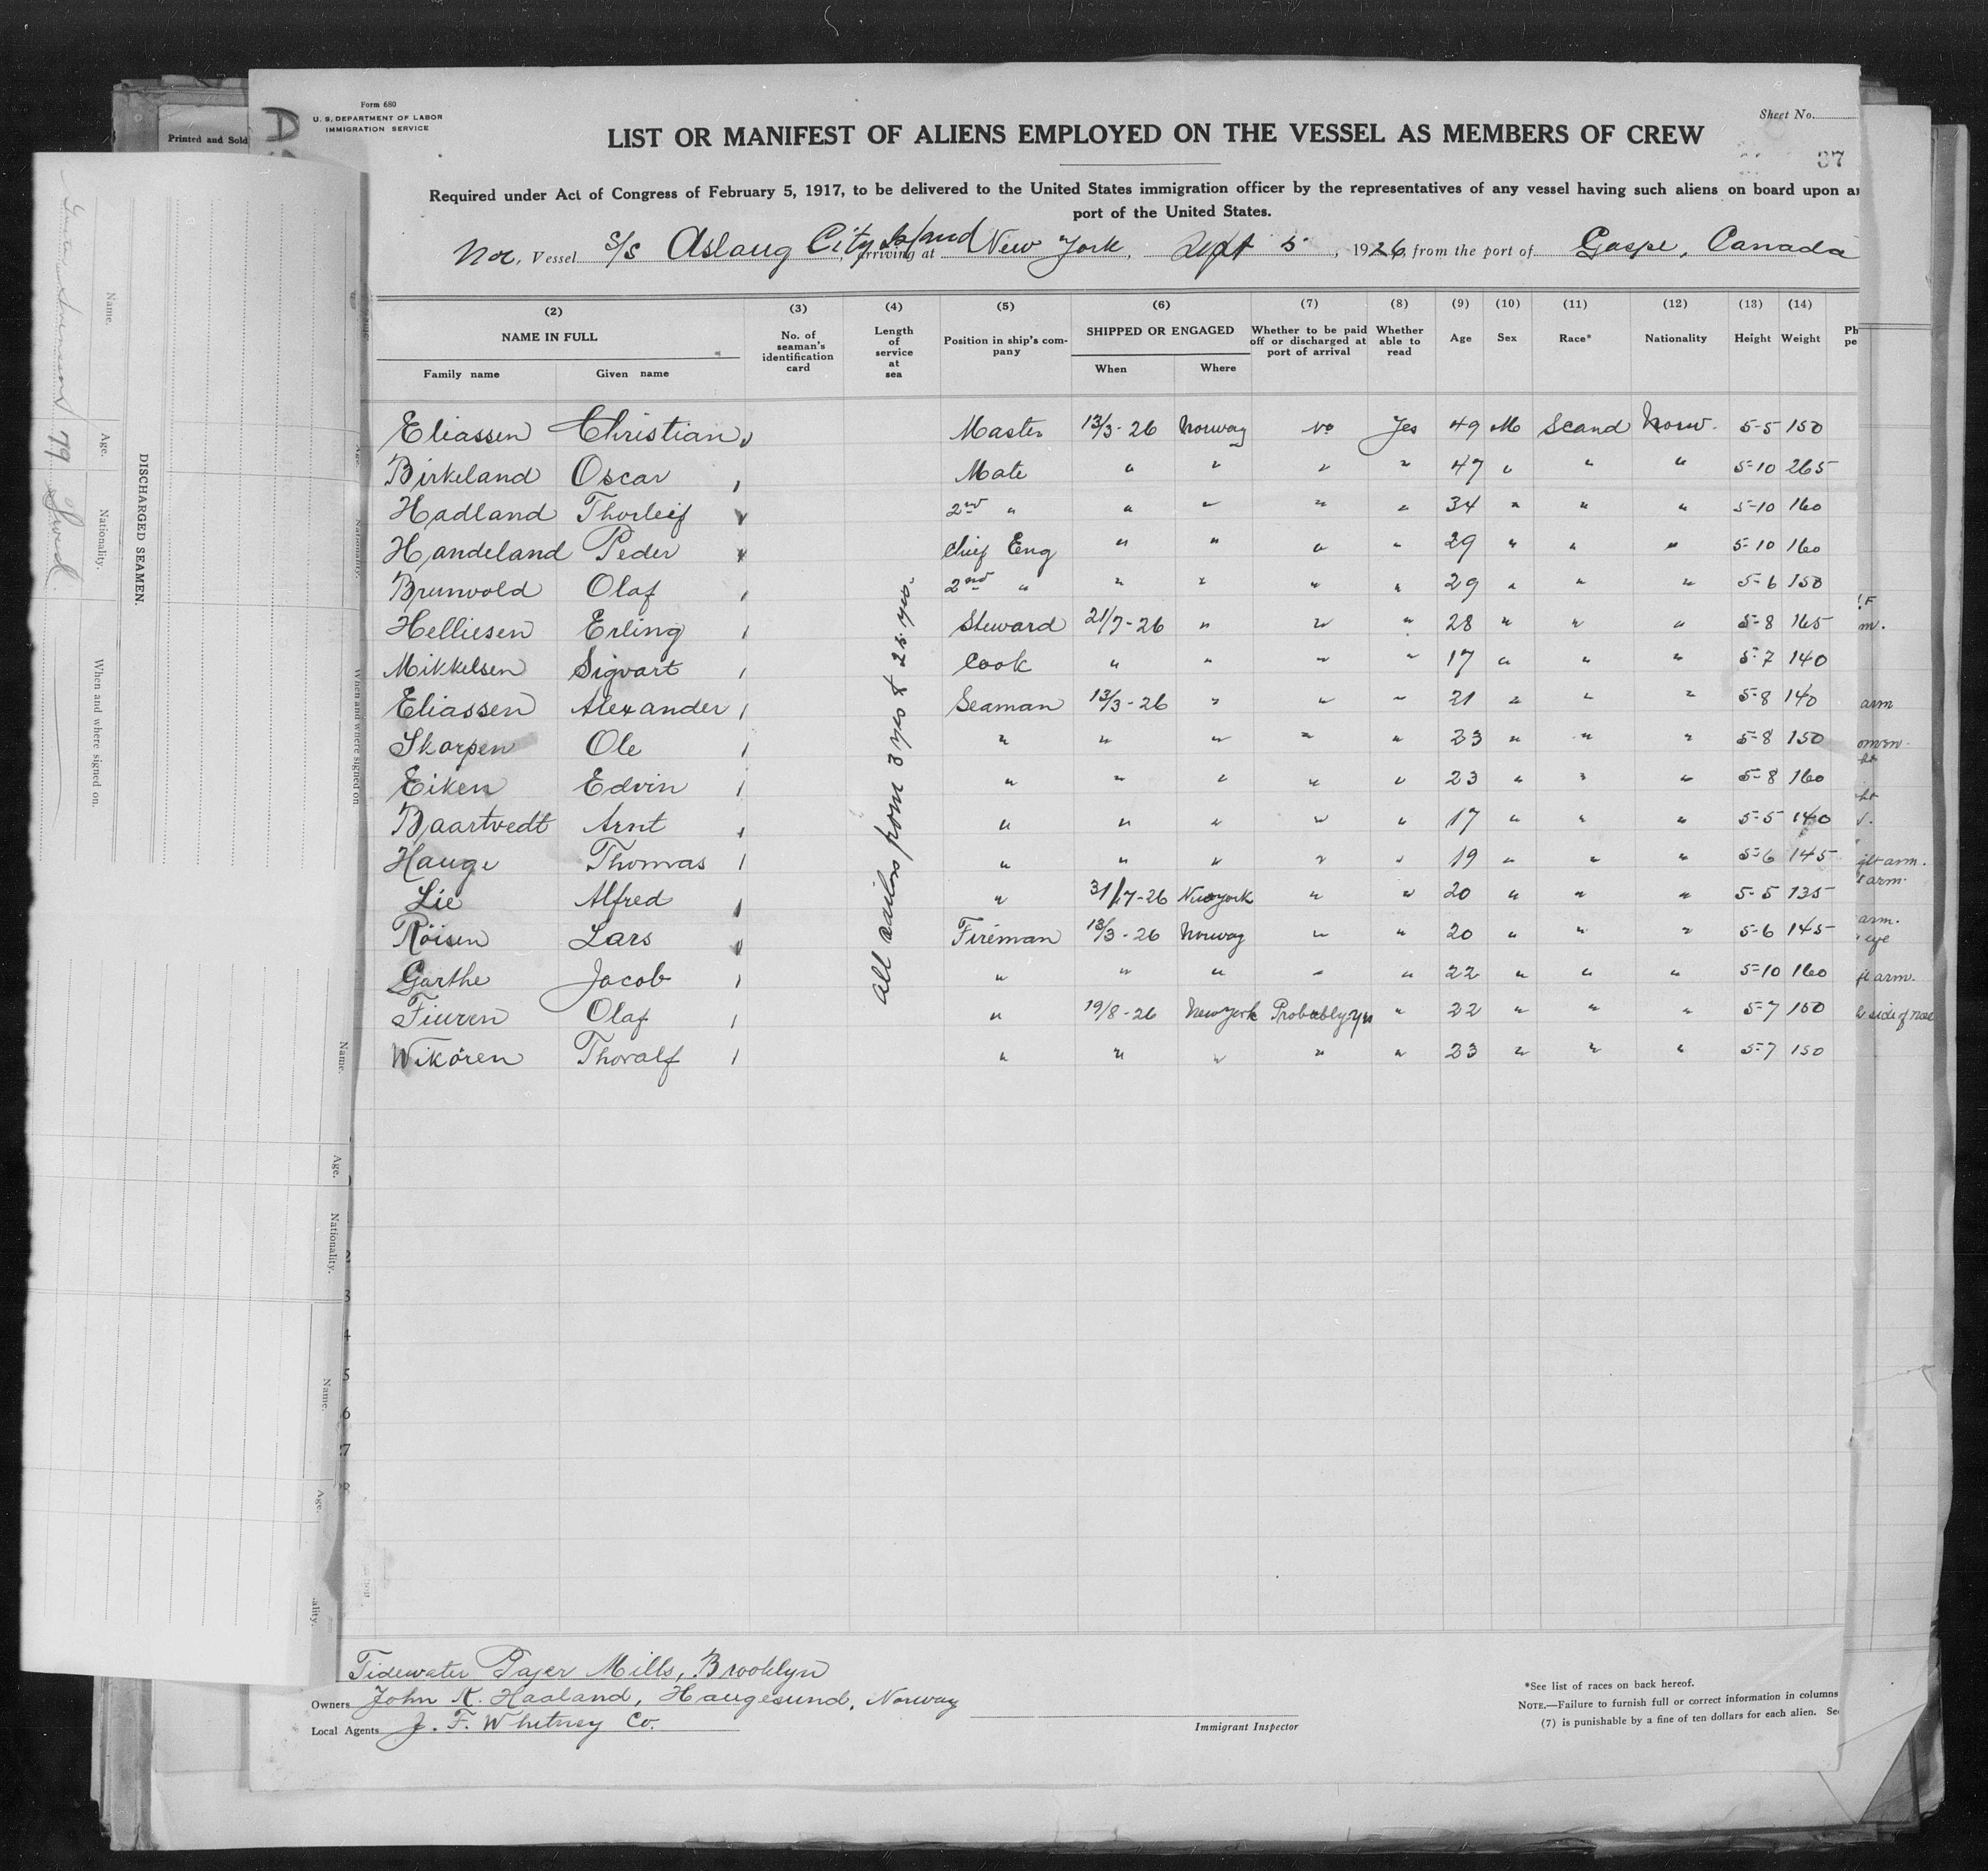 Form 680
U. S. DEPARTMENT OF LABOR
IMMIGRATION SERVICE
Printed and Sold
Sheet No.
LIST OR MANIFEST OF ALIENS EMPLOYED ON THE VESSEL AS MEMBERS OF CREW
37
Required under Act of Congress of February 5, 1917, to be delivered to the United States immigration officer by the representatives of any vessel having such aliens on board upon
port of the United States.
Nor, Vessel S/S Aslaug City Island, arriving at New York, Sept 5, 1926, from the port of Gaspe, Canada
(2) (3) (4) (5) (6) (7) (8) (9) (10) (11) (12) (13) (14)
NAME IN FULL No. of seaman's identification card Length of service at sea Position in ship's company SHIPPED OR ENGAGED Whether to be paid off or discharged at port of arrival Whether able to read Age Sex Race* Nationality Height Weight Ph
Family name Given name When Where
Eliassen Christian Master 13/3-26 Norway No Yes 49 M Scand Norw. 5-5 150
Birkeland Oscar Mate " " " " 47 " " " 5-10 265
Hadland Thorleif 2nd " " " " " 34 " " " 5-10 160
Handeland Peder Chief Eng " " " " 29 " " " 5-10 160
Brunvold Olaf 2nd " " " " " 29 " " " 5-6 150
Helliesen Erling Steward 21/7-26 " " " 28 " " " 5-8 165
Mikkelsen Sigvart Cook " " " " 17 " " " 5-7 140
Eliassen Alexander Seaman 13/3-26 " " " 21 " " " 5-8 140
Skorpen Ole " " " " " 23 " " " 5-8 150
Eiken Edvin " " " " " 23 " " " 5-8 160
Baartvedt Arnt " " " " " 17 " " " 5-5 140
Hauge Thomas " " " " " 19 " " " 5-6 145
Lie Alfred " 31/7-26 New York " " 20 " " " 5-5 135
Röisen Lars Fireman 13/3-26 Norway " " 20 " " " 5-6 145
Garthe Jacob " " " " " 22 " " " 5-10 160
Fiuren Olaf " 19/8-26 New York Probably yes " 22 " " " 5-7 150
Wikören Thoralf " " " " " 23 " " " 5-7 150
All sailors from 3 yrs & 25 yrs.
arm
arm.
eye
arm.
side of nose
Tidewater Paper Mills, Brooklyn
Owners John K. Haaland, Haugesund, Norway
Local Agents J. F. Whitney Co.
Immigrant Inspector
*See list of races on back hereof.
NOTE.—Failure to furnish full or correct information in columns
(7) is punishable by a fine of ten dollars for each alien.
DISCHARGED SEAMEN.
Name. Age. Nationality. When and where signed on.
Name. Age. Nationality.
Name. Age.